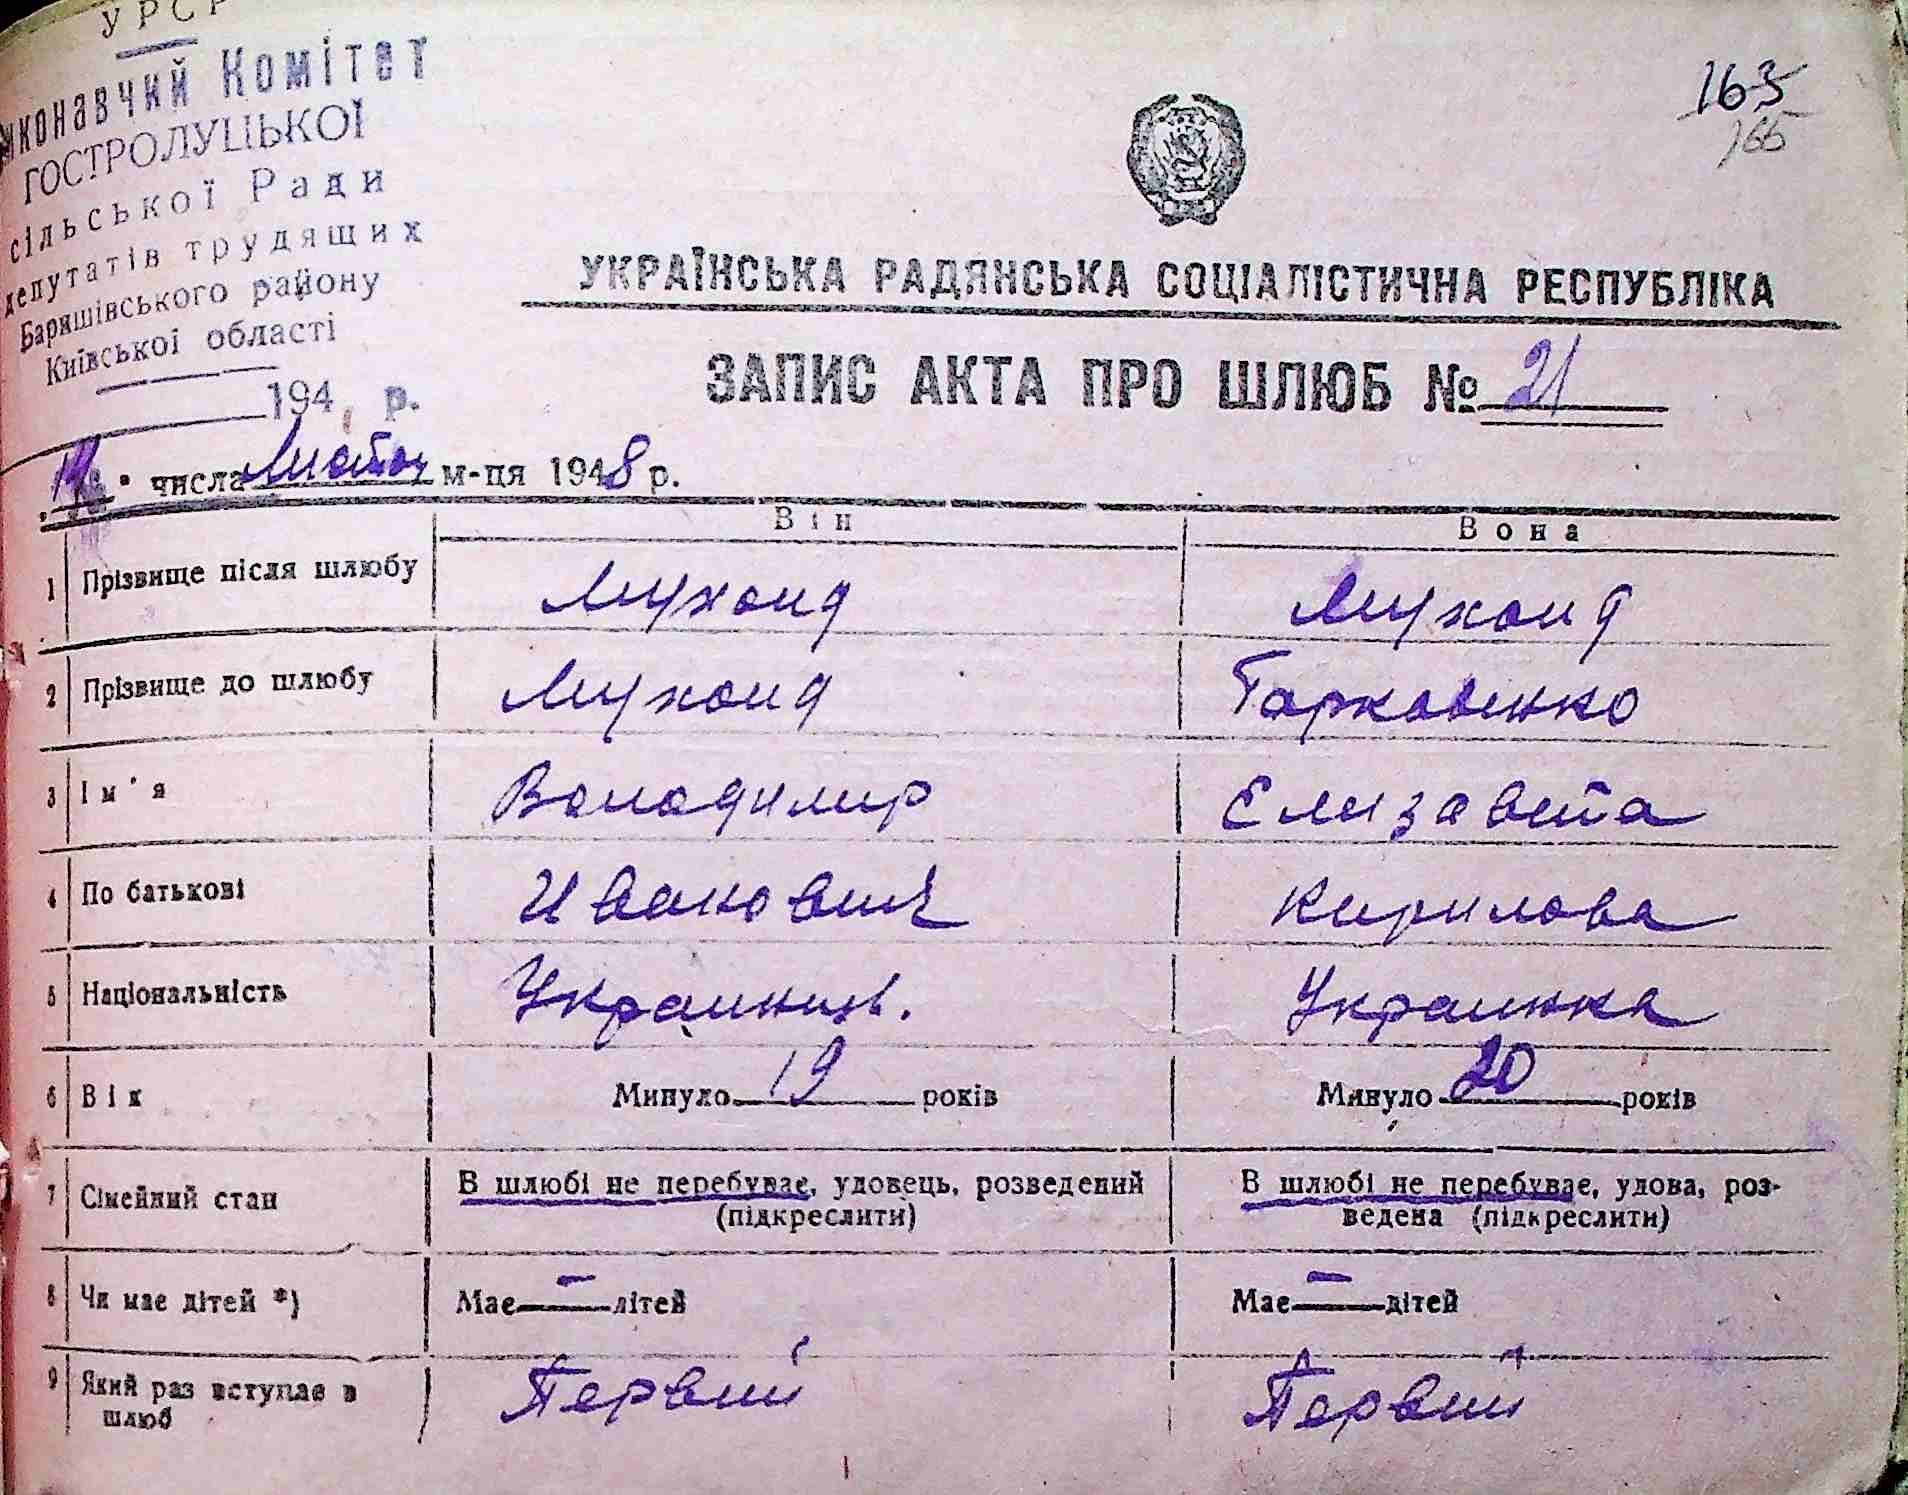 УРСР
Виконавчий Комітет
ГОСТРОЛУЦЬКОЇ
сільської Ради
депутатів трудящих
Баришівського району
Київської області
194 р.
163
165
УКРАЇНСЬКА РАДЯНСЬКА СОЦІАЛІСТИЧНА РЕСПУБЛІКА
ЗАПИС АКТА ПРО ШЛЮБ № 21
числа Листоп м-ця 1948 р.
Він Вона
1 Прізвище після шлюбу Мухоид Мухоид
2 Прізвище до шлюбу Мухоид Тарковенко
3 Ім'я Володимир Елизавета
4 По батькові Иванович Кирилова
5 Національність Украинець. Украинка
6 Вік Минуло 19 років Минуло 20 років
7 Сімейний стан В шлюбі не перебуває, удовець, розведений (підкреслити) В шлюбі не перебуває, удова, роз-
ведена (підкреслити)
8 Чи має дітей *) Має — дітей Має — дітей
9 Який раз вступає в шлюб Первий Первий